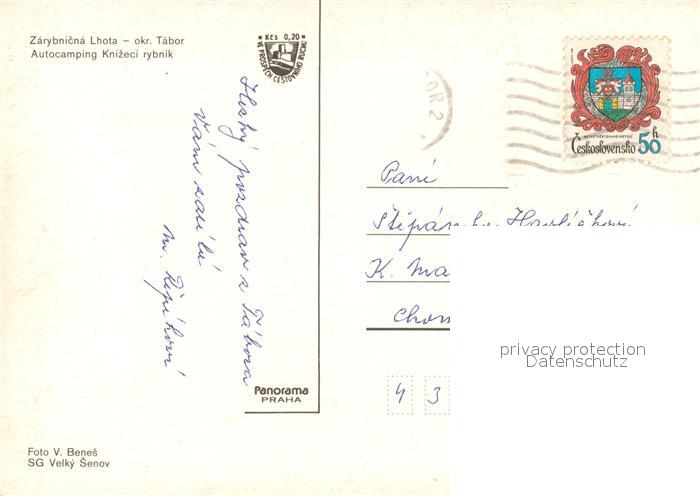 Zárybničná Lhota – okr. Tábor
Autocamping Knížecí rybník
Kčs 0,20
VE PROSPĚCH CESTOVNÍHO RUCHU
Hezký pozdrav z Tábora
Vám zasílá
M. Řepíková
Panorama
PRAHA
Foto V. Beneš
SG Velký Šenov
TÁBOR 2
Československo 50 h
Paní
Štěpánka Havlíčková
K. Ma
Chom
4 3
privacy protection
Datenschutz